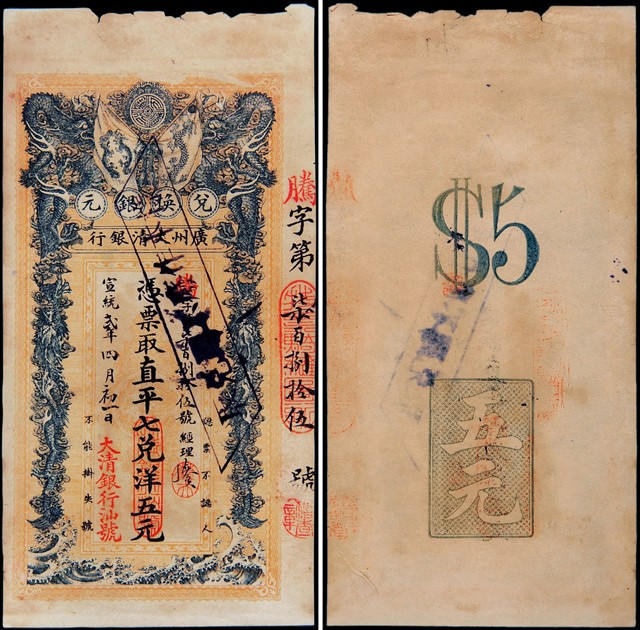 兌換銀元
廣州大清銀行
騰字第柒百捌拾伍號
票不認人
百捌拾伍號 經理
憑票取直平七兌洋五元
宣統弍年四月初一日
不能掛失號
大清銀行汕號
$5
五元